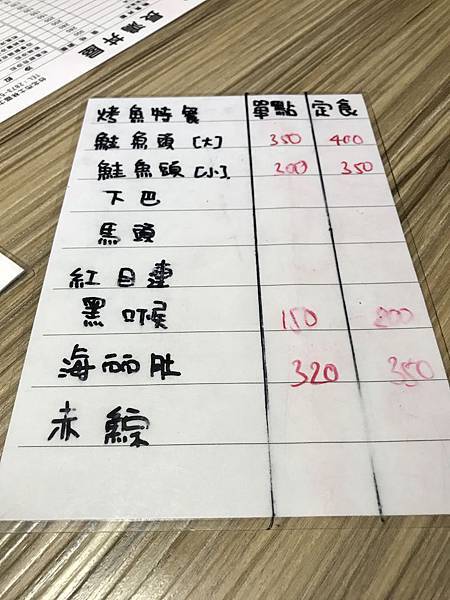 長鴻丼屋
烤魚特餐 單點 定食
鮭魚頭[大] 350 400
鮭魚頭[小] 300 350
下巴
馬頭
紅目連
黑吖候 150 200
海丽肚 320 350
赤鯮